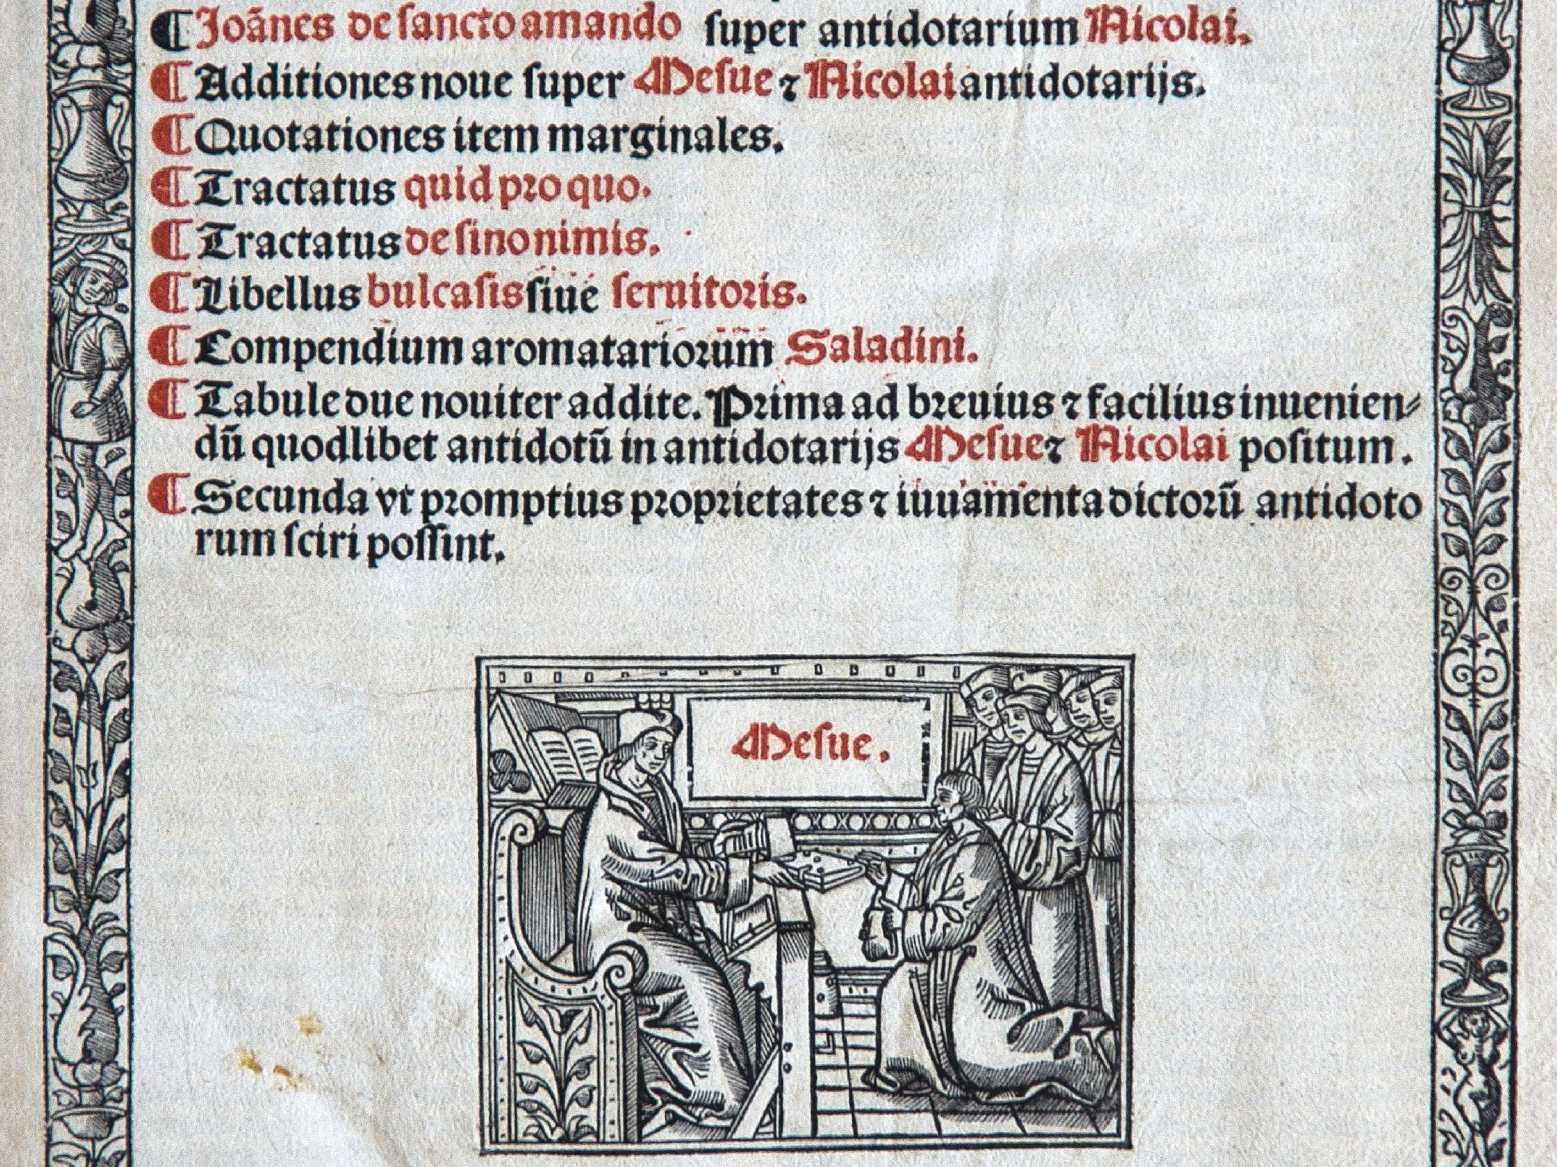 ¶ Joānes de sancto amando super antidotarium Nicolai.
¶ Additiones noue super Mesue ⁊ Nicolai antidotarijs.
¶ Quotationes item marginales.
¶ Tractatus quid pro quo.
¶ Tractatus de sinonimis.
¶ Libellus bulcasis siue seruitoris.
¶ Compendium aromatariorum Saladini.
¶ Tabule due nouiter addite. Prima ad breuius ⁊ facilius inuenien⸗
dū quodlibet antidotū in antidotarijs Mesue ⁊ Nicolai positum.
¶ Secunda vt promptius proprietates ⁊ iuuamenta dictorū antidoto
rum sciri possint.
Mesue.